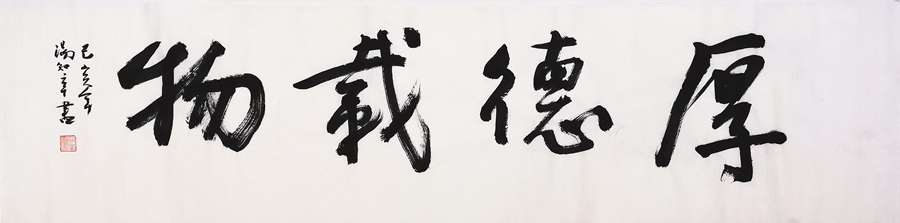 厚德載物
己亥年
湯知章書